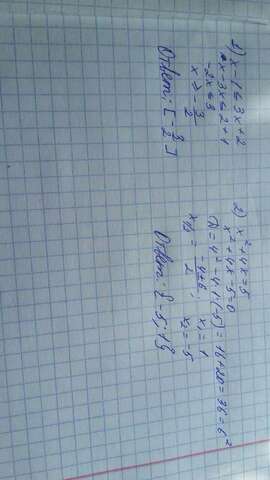 1) x-1≤3x+2
x-3x≤2+1
-2x≤3
x≥-3/2
Ответ: [-3/2]
2) x²+4x=5
x²+4x-5=0
D=4²-4·1·(-5)=16+20=36=6²
x₁,₂=(-4±6)/2; x₁=1
x₂=-5
Ответ: {-5;1}